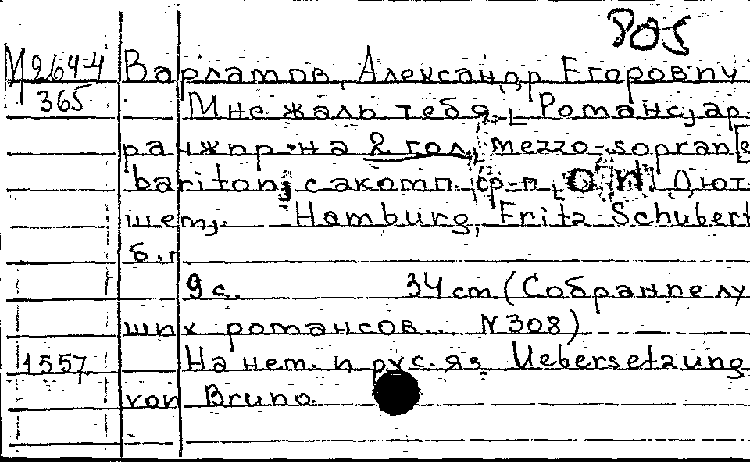 805
М264-4 Варламов, Александр Егорович
365 Мне жаль тебя. [Романс, ар-
ранжир. на 2 гол., mezzo-sopran [e
bariton, с акомп. ф-п.] О. И. Дют-
шем. Hamburg, Fritz Schubert
б. г.
9 с. 34 cm (Собрание лу
ших романсов... N 308)
1557 На нем. и рус. яз. Uebersetzung
von Bruno.